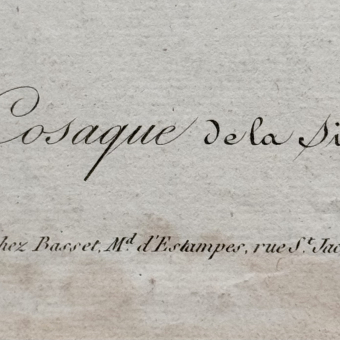 Cosaque de la Si
hez Basset, M.d d'Estampes, rue S.t Jac